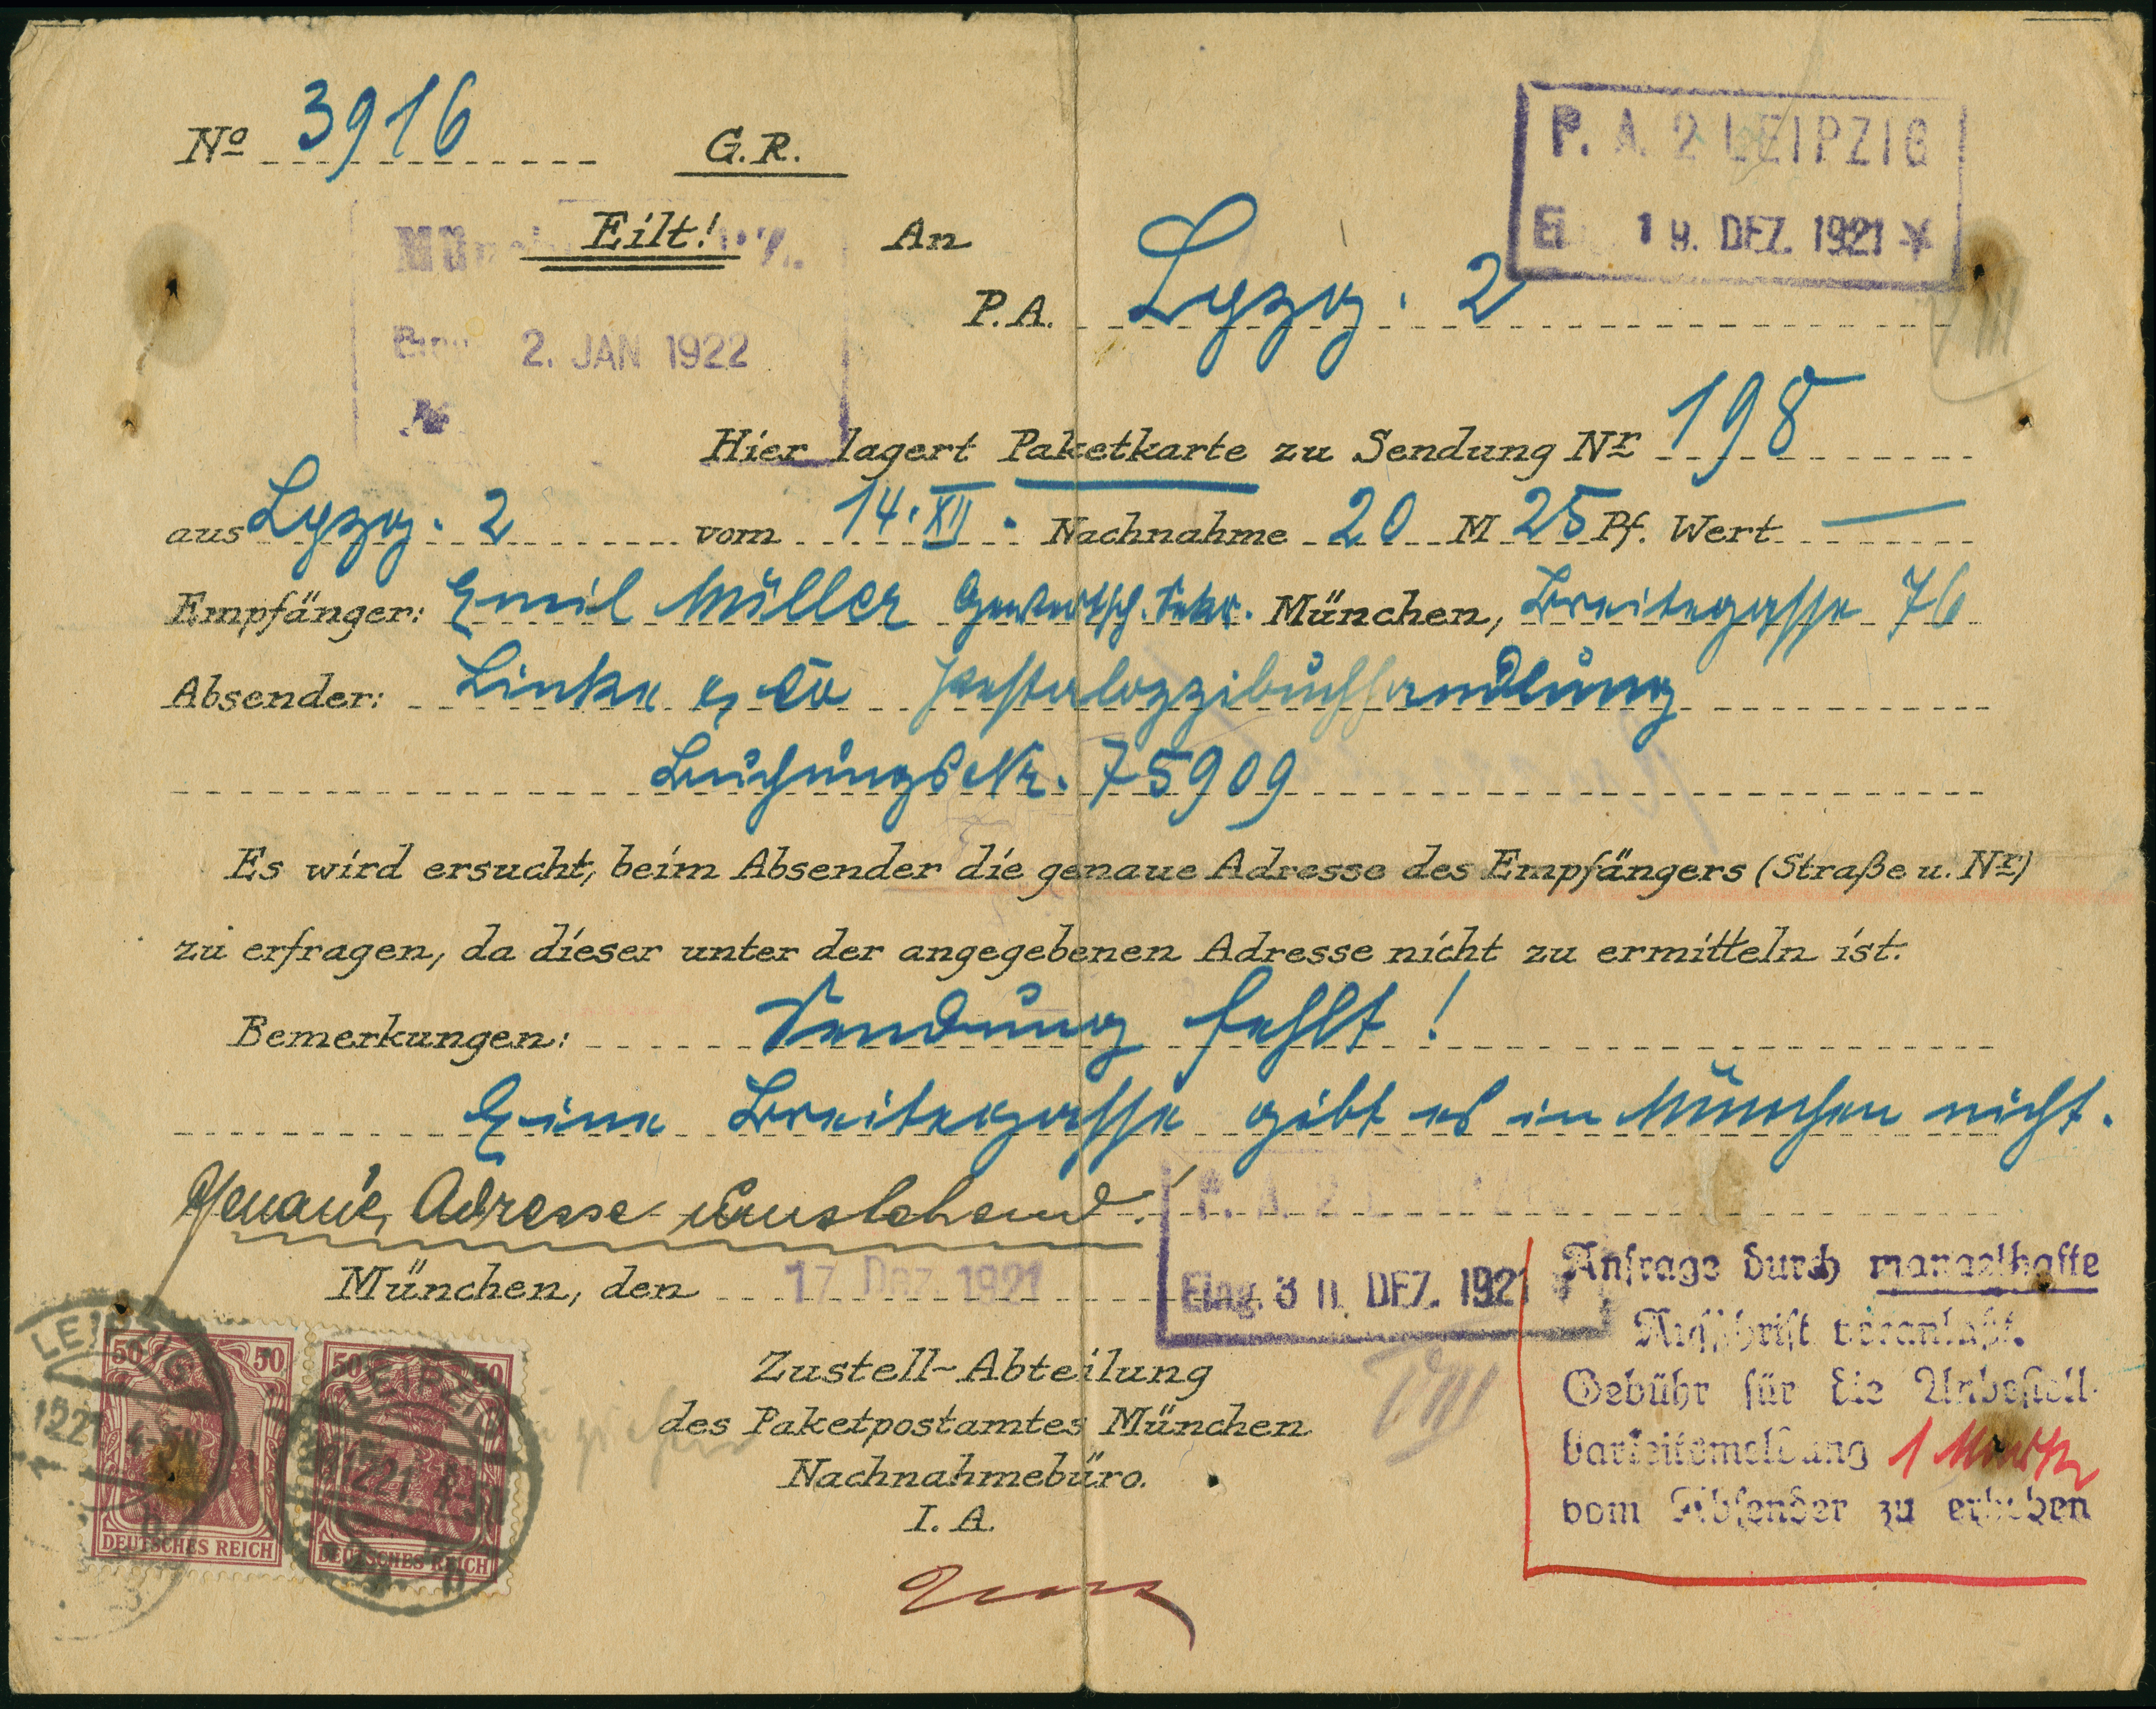 No 3916 G.R.
P. A. 2 LEIPZIG
19. DEZ. 1921
Eilt!
An
P.A. Lpzg. 2
2. JAN 1922
Hier lagert Paketkarte zu Sendung Nr 198
aus Lpzg. 2 vom 14. XII. Nachnahme 20 M 25 Pf. Wert —
Empfänger: Emil Müller Gewerksch. Sekr. München, Breitegasse 76
Absender: Linke & Co Pestalozzibuchhandlung
Buchungs Nr. 75909
Es wird ersucht, beim Absender die genaue Adresse des Empfängers (Straße u. Nr)
zu erfragen, da dieser unter der angegebenen Adresse nicht zu ermitteln ist.
Bemerkungen: Sendung fehlt!
Eine Breitegasse gibt es in München nicht.
Genaue Adresse umstehend!
P. A. 2
München, den 17. Dez. 1921
Eing. 30. DEZ. 1921
Zustell-Abteilung
des Paketpostamtes München
Nachnahmebüro.
I. A.
Anfrage durch mangelhafte
Aufschrift veranlaßt.
Gebühr für die Unbestell-
barkeitsmeldung 1 Mark
vom Absender zu erheben
LEIPZIG
50 50
DEUTSCHES REICH
LEIPZIG
50 50
DEUTSCHES REICH
VIII